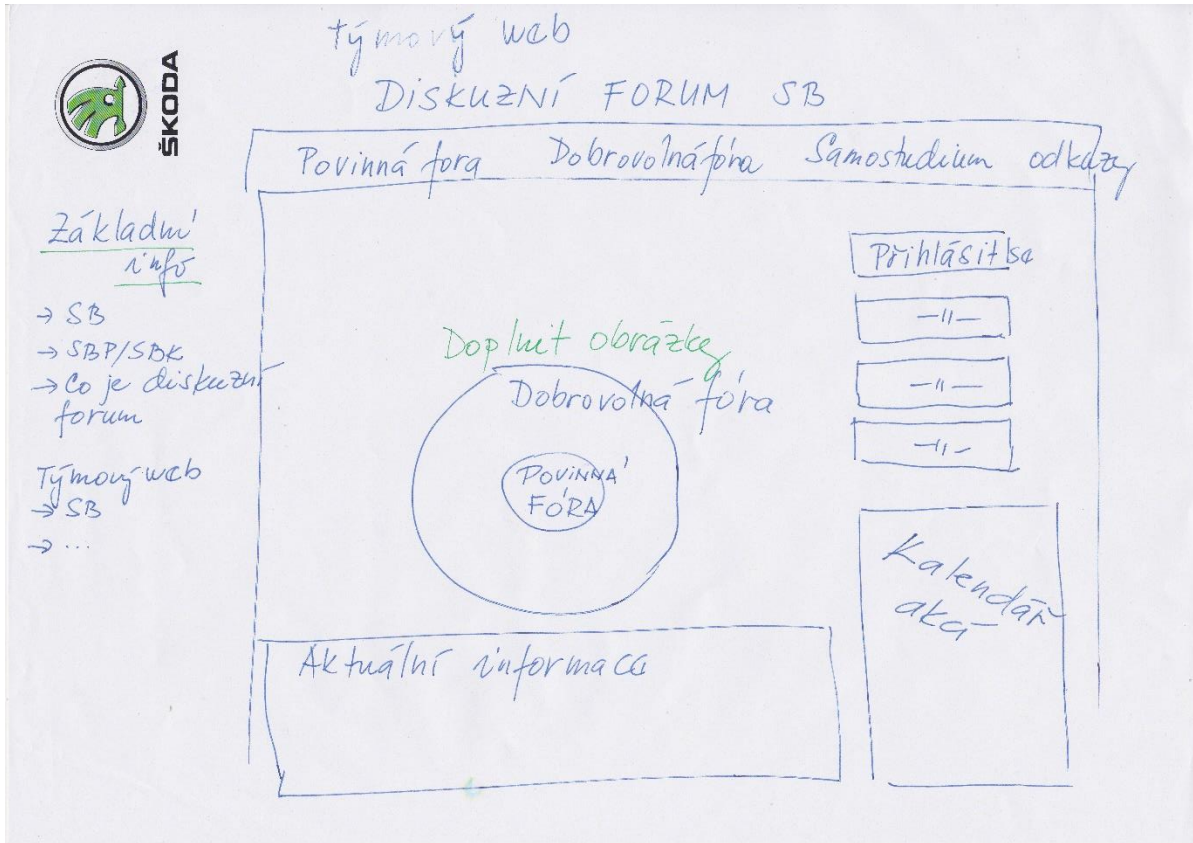 Týmový web
DISKUZNÍ FORUM SB
ŠKODA
Povinná fora Dobrovolná fóra Samostudium odkazy
Základní
info
→ SB
→ SBP/SBK
→ Co je diskuzní
forum
Týmový web
→ SB
→ ...
Doplnit obrázky
Dobrovolná fóra
POVINNÁ
FÓRA
Přihlásit se
—||—
—||—
—||—
Kalendář
akcí
Aktuální informace